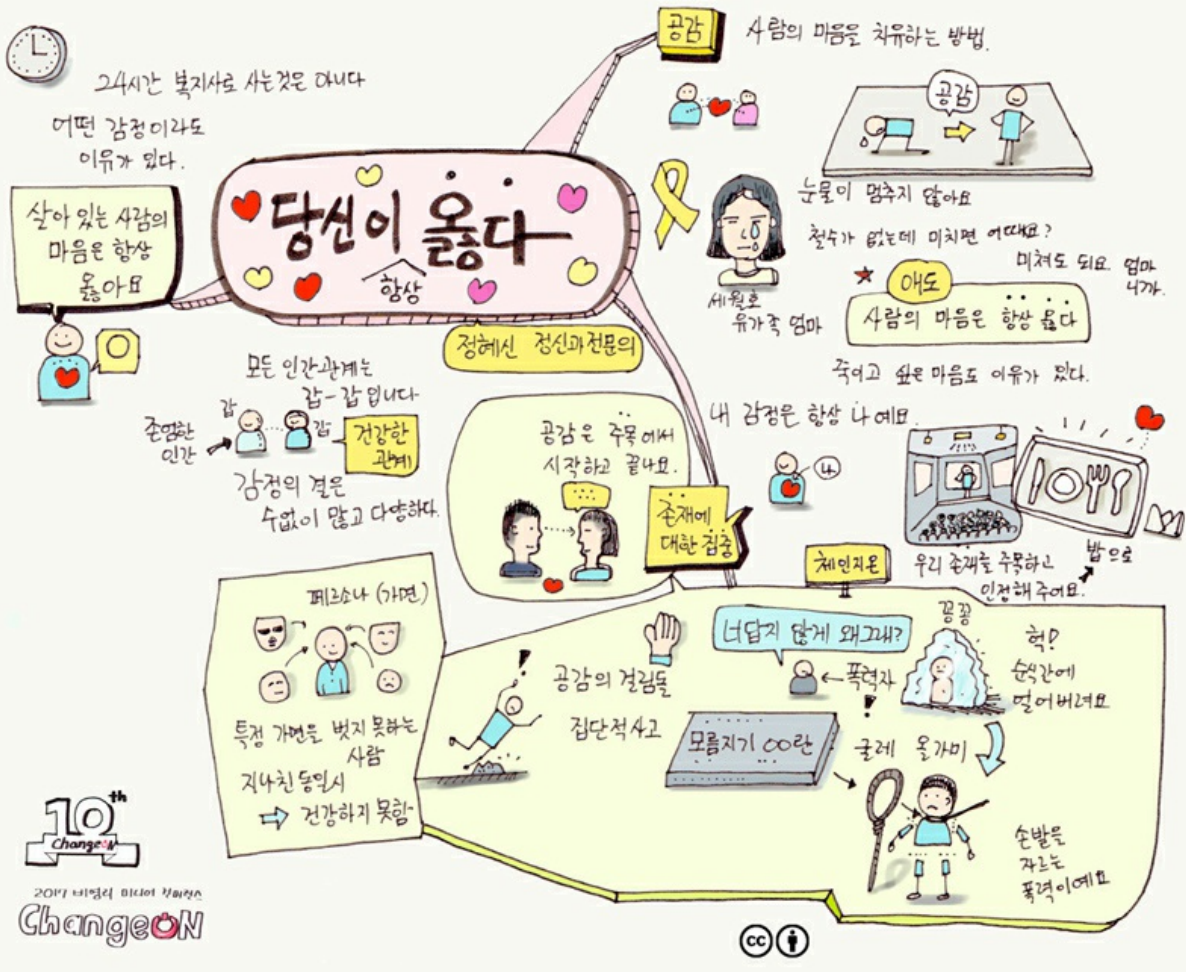 24시간 복지사로 사는것은 아니다
어떤 감정이라도
이유가 있다.
살아 있는 사람의
마음은 항상
옳아요
당신이 옳다
항상
정혜신 정신과전문의
공감
사람의 마음을 치유하는 방법.
공감
눈물이 멈추지 않아요
철수가 없는데 미치면 어때요?
미쳐도 되요. 엄마
니까.
세월호
유가족 엄마
애도
사람의 마음은 항상 옳다
죽이고 싶은 마음도 이유가 있다.
내 감정은 항상 나예요.
나
우리 존재를 주목하고
인정해 주어요.
밥으로
모든 인간관계는
갑-갑 입니다
갑
갑
존엄한
인간
건강한
관계
감정의 결은
수없이 많고 다양하다.
공감은 주목에서
시작하고 끝나요.
존재에
대한 집중
체인지온
페르소나 (가면)
특정 가면을 벗지 못하는
사람
지나친 동일시
⇨ 건강하지 못함
공감의 걸림돌
집단적사고
너답지 않게 왜그래?
←폭력자
모름지기 OO란
꽁꽁
헉!
순식간에
얼어버려요
굴레 올가미
손발을
자르는
폭력이예요
10th
ChangeON
2017 비영리 미디어 컨퍼런스
ChangeON
cc